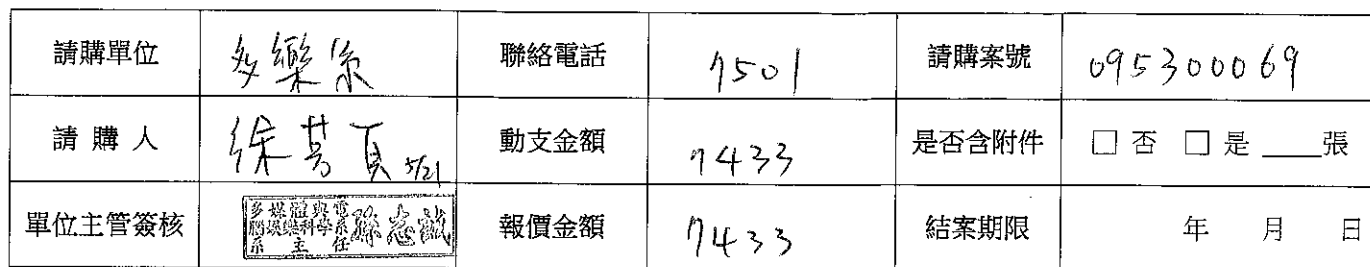 請購單位 多樂系 聯絡電話 7501 請購案號 095300069
請購人 徐芳頁 5/21 動支金額 7433 是否含附件 □ 否 □ 是 ____張
單位主管簽核 報價金額 7433 結案期限 年 月 日